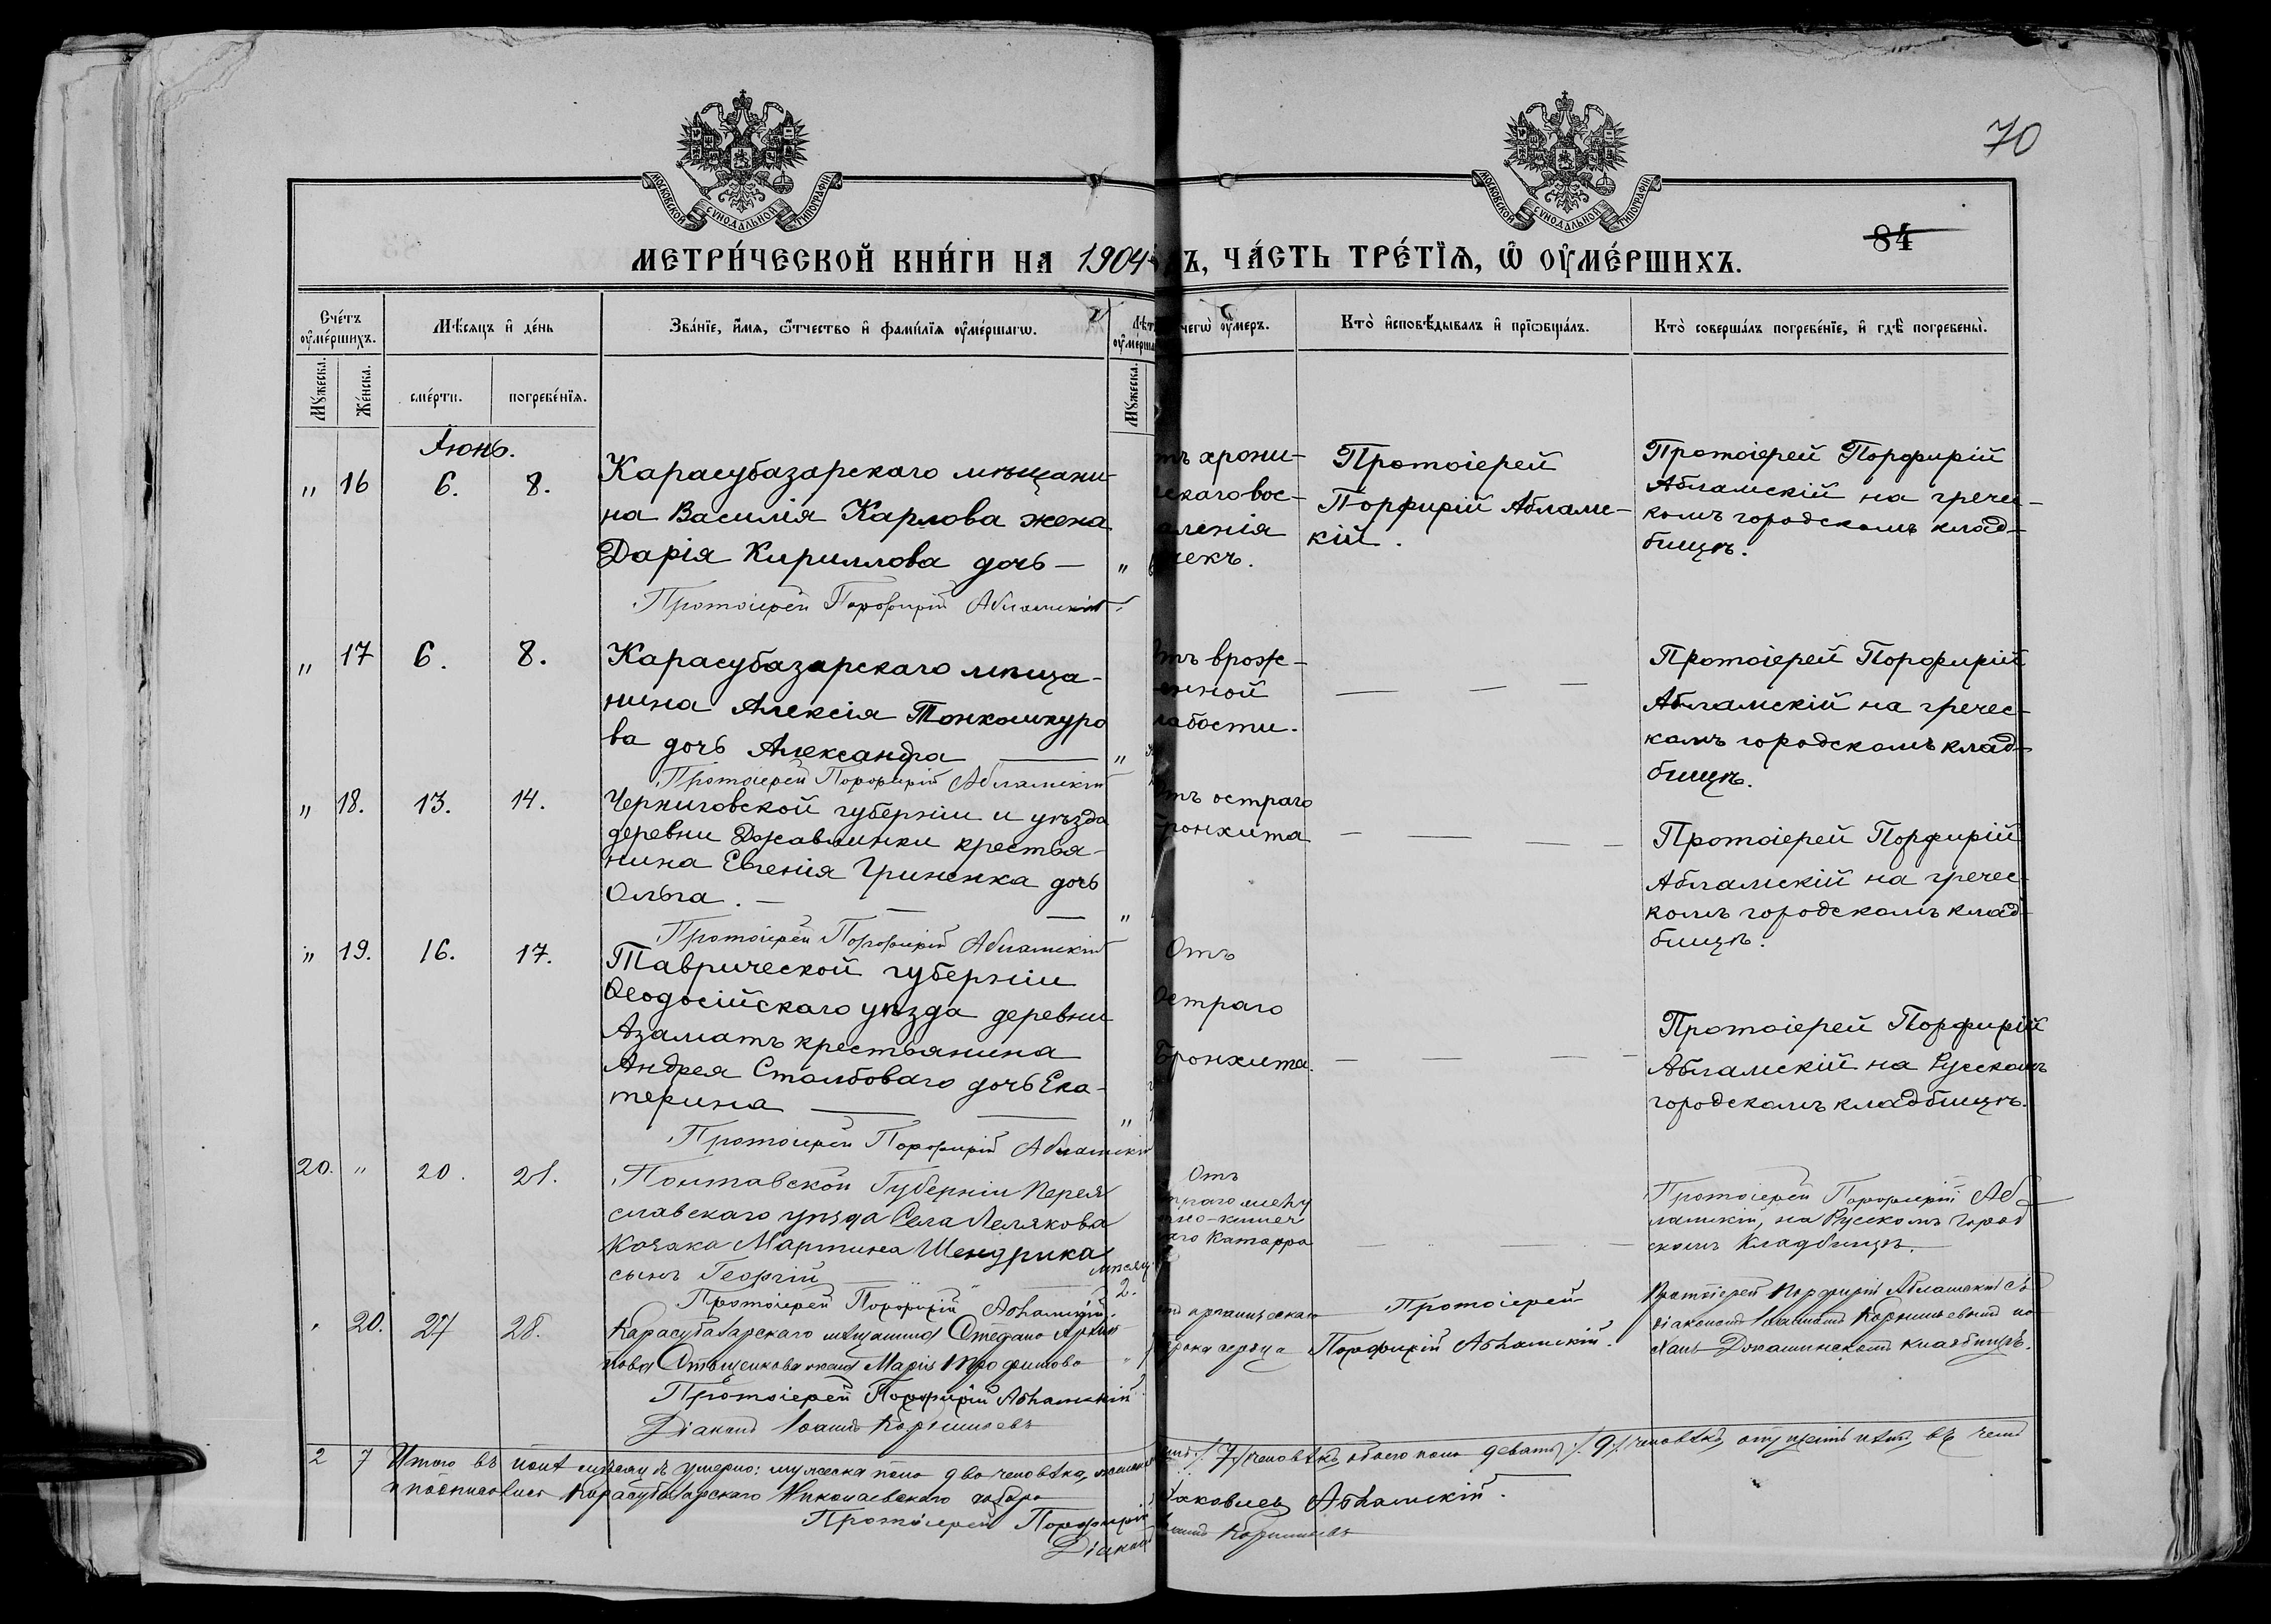 70
МОСКОВСКОЙ СѴНОДАЛЬНОЙ ТИПОГРАФІИ
МОСКОВСКОЙ СѴНОДАЛЬНОЙ ТИПОГРАФІИ
84
МЕТРИ́ЧЕСКОЙ КНИ́ГИ НА 1904 Ъ, ЧА́СТЬ ТРЕ́ТІѦ, Ѡ ОУМЕ́РШИХЪ.
Сче́тъ оумéршихъ.
Мѣ́сяцъ и де́нь
Зва́нїе, и́мя, ѻтчество и фами́лїя оуме́ршагѡ.
чегѡ̀ оу́меръ.
Кто̀ и҆сповѣ́дывалъ и҆ прїѡбща́лъ.
Кто̀ соверша́лъ погребе́нїе, и҆ гдѣ̀ погребены̀.
Му́жеска.
Же́нска.
сме́рти.
погребе́нїя.
Му́жеска.
Іюнь.
" 16 6. 8.
Карасубазарскаго мѣщани-
на Василія Карлова жена
Дарія Кириллова дочь — "
Протоіерей Порфирій Абламскій
тъ хрони-
скаго вос-
аленія
чекъ.
Протоіерей
Порфирій Аблам-
кій.
Протоіерей Порфирій
Абламскій на гречес-
комъ городскомъ клад-
бищѣ.
" 17 6. 8.
Карасубазарскаго мѣща-
нина Алексія Тонкошкуро
ва дочь Александра — "
Протоіерей Порфирій Абламскій
тъ врож-
енной
лабости.
Протоіерей Порфирій
Абламскій на гречес-
комъ городскомъ клад-
бищѣ.
" 18. 13. 14.
Черниговской губерніи и уѣзда
деревни крестья-
нина Евгенія Гриненка дочь
Ольга. — "
Протоіерей Порфирій Абламскій
тъ остраго
бронхита
Протоіерей Порфирій
Абламскій на гречес-
комъ городскомъ клад-
бищѣ.
" 19. 16. 17.
Таврической губерніи
Ѳеодосійскаго уѣзда деревни
Азаматъ крестьянина
Андрея Столбоваго дочь Ека-
терина — "
Протоіерей Порфирій Абламскій
Отъ
Остраго
Бронхита.
Протоіерей Порфирій
Абламскій на Русскомъ
городскомъ кладбищѣ.
20. " 20. 21.
Полтавской Губерніи Перея
славскаго уѣзда Села Лелякова
Козака Мартина Шендрика
сынъ Георгій — мѣсяц
2.
Протоіерей Порфирій Абламскій.
Отъ
но-кишеч
аго Катарра
Протоіерей Порфирій Аб-
ламскій, на Русскомъ Город
скомъ Кладбищѣ.
20. 27 28.
Карасубазарскаго мѣщанина Стефана
жена Марія Трофимова
Протоіерей Порфирій Абламскій
Діаконъ Іоаннъ
органическаго
порока сердца
Протоіерей
Порфирій Абламскій.
Протоіерей Порфирій Абламскій съ
діакономъ Іоанномъ на
кладбищѣ.
2 7 Итого въ іюнѣ мѣсяцѣ умерло: мужеска пола два человѣка,
7 человѣкъ, обоего пола девять 9 человѣкъ, въ чемъ
и подписались Карасубазарскаго Николаевскаго собора
Протоіерей Порфирій Яковлевъ Абламскій.
Діаконъ